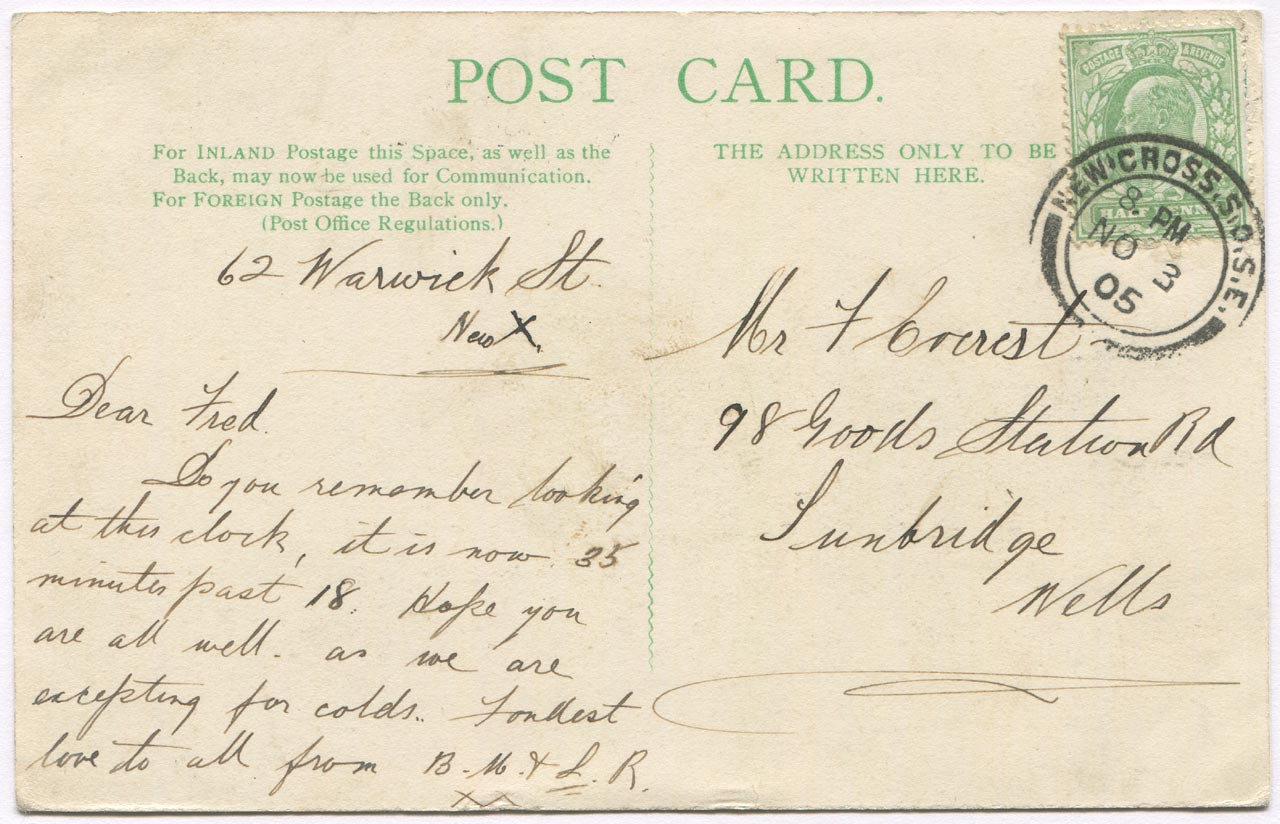 POST CARD.
For INLAND Postage this Space, as well as the
Back, may now be used for Communication.
For FOREIGN Postage the Back only.
(Post Office Regulations.)
62 Warwick St.
New X.
Dear Fred.
Do you remember looking
at this clock, it is now 35
minutes past 18. Hope you
are all well. as we are
excepting for colds.. Fondest
love to all from B. M. & L. R.
THE ADDRESS ONLY TO BE
WRITTEN HERE.
POSTAGE & REVENUE
NEW CROSS.S.O.S.E.
8. PM
NO 3
05
Mr F Everest
98 Goods Station Rd
Tunbridge
Wells